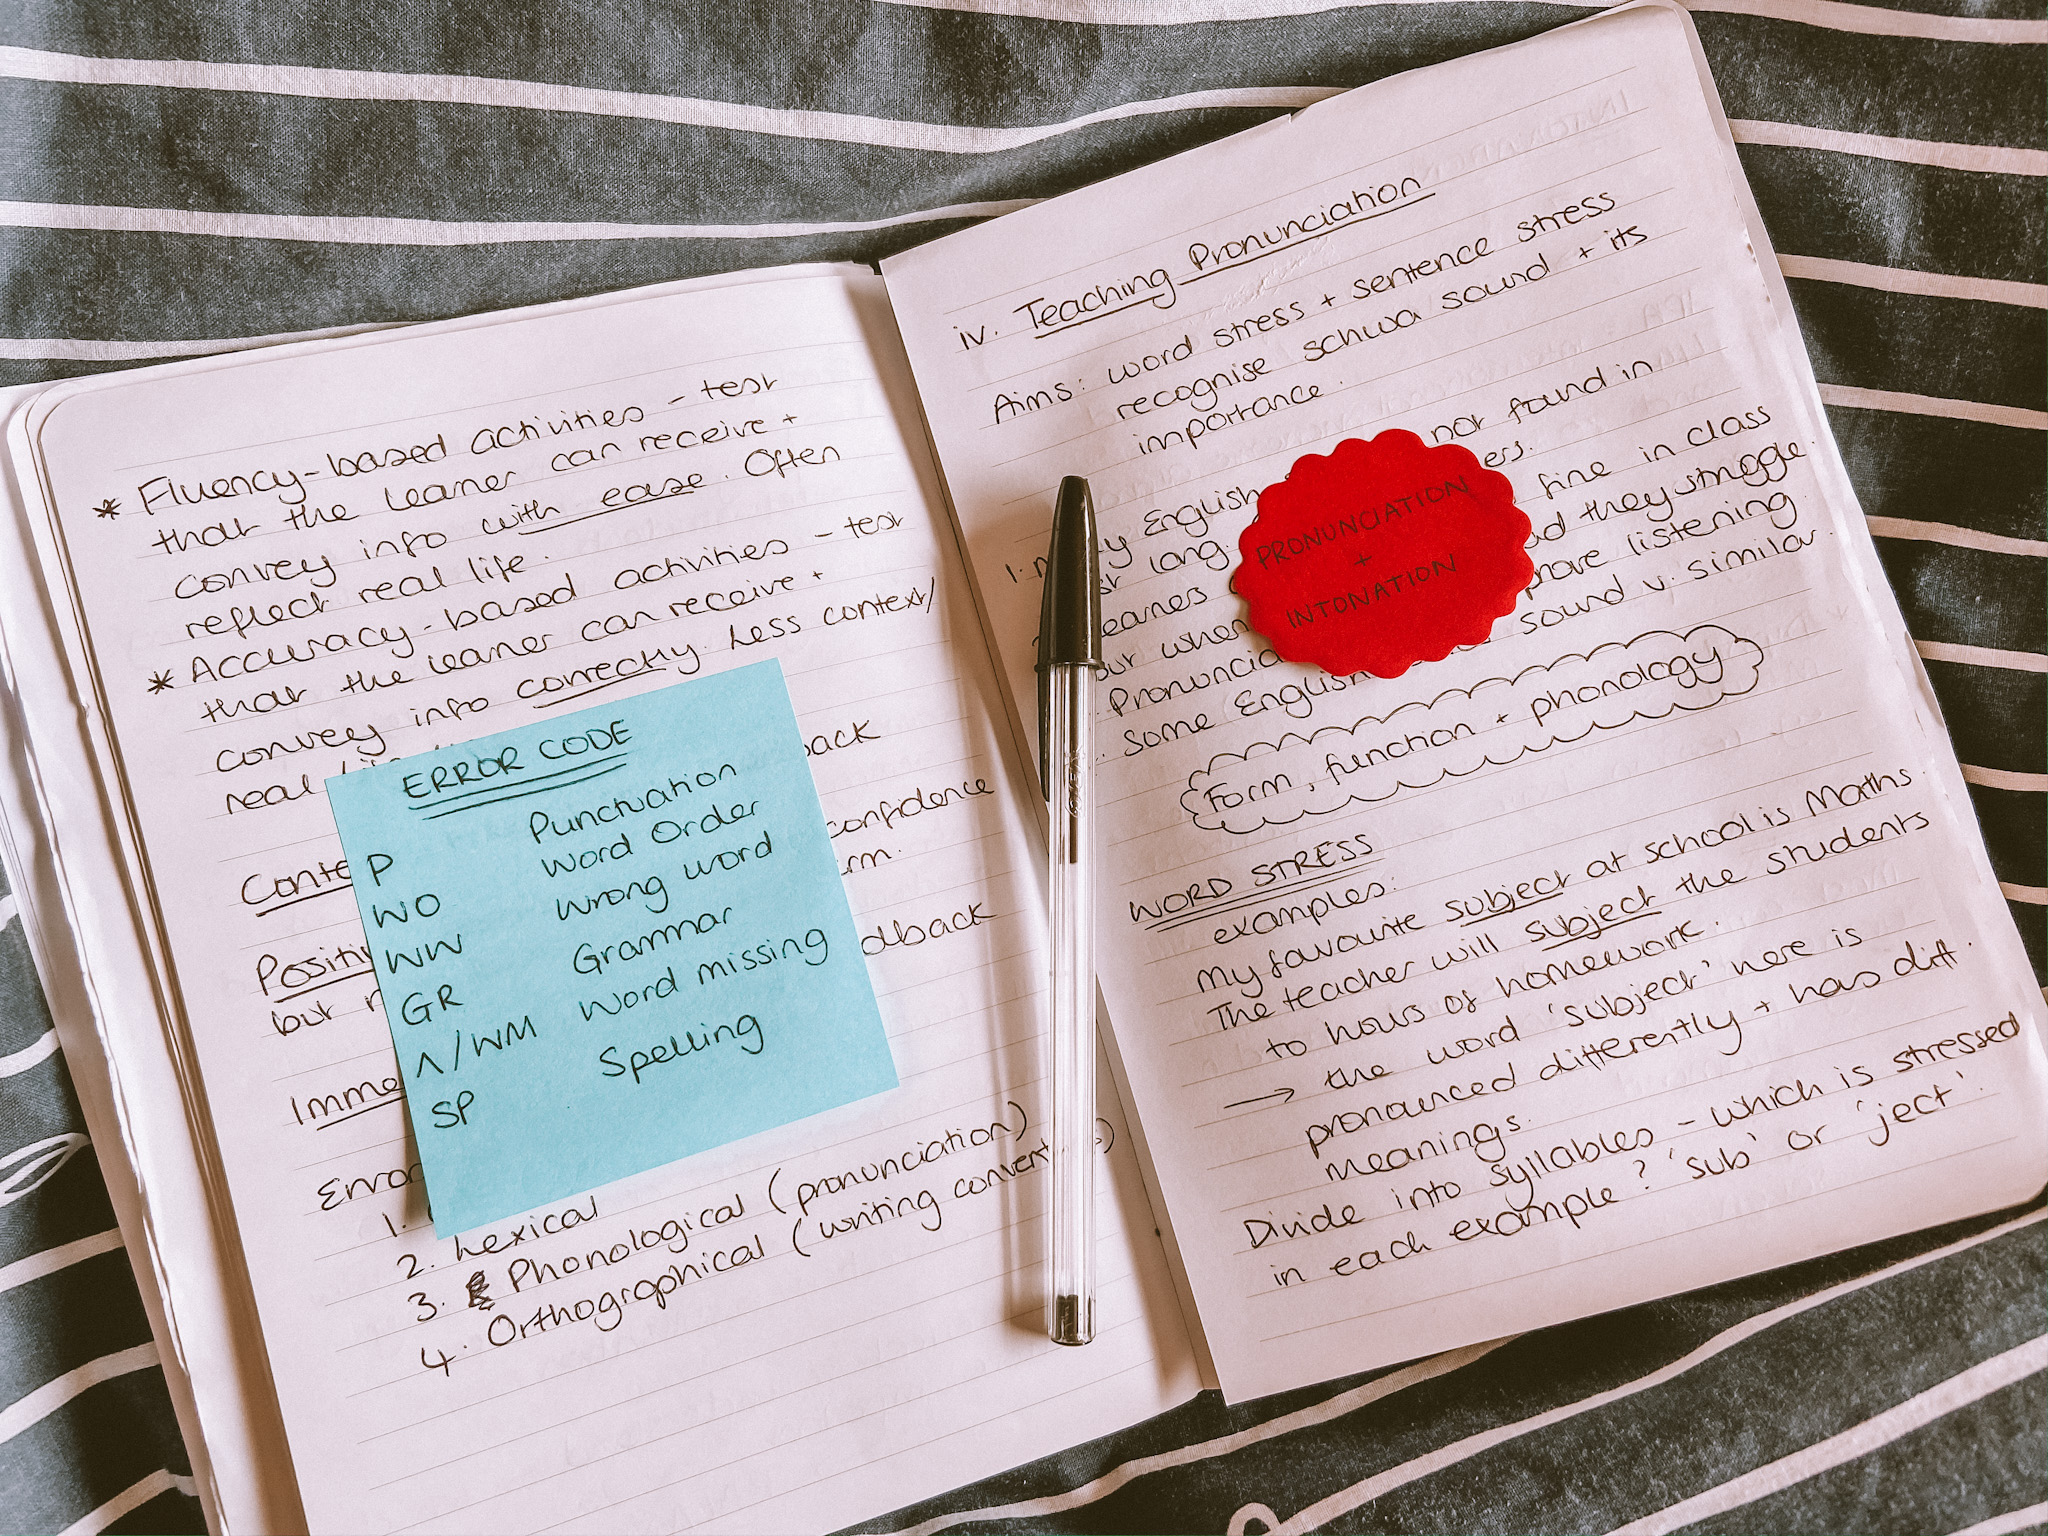 * Fluency-based activities - test
that the leaner can receive +
convey info with ease. Often
reflect real life.
* Accuracy-based activities - test
that the leaner can receive +
convey info correctly. Less context/
real
back
confidence
Positi
dback
but
Imme
Error
1.
2. Lexical
3. Phonological (pronunciation)
4. Orthographical (writing
ERROR CODE
P Punctuation
WO Word Order
WW Wrong word
GR Grammar
ʌ/WM Word missing
SP Spelling
iv. Teaching Pronunciation
Aims: word stress + sentence stress
recognise schwa sound + its
importance.
1. English not found in
lang.
fine in class
but when they struggle.
Pronuncia listening
Some English sound v. similar.
PRONUNCIATION
+
INTONATION
Form, function + phonology
WORD STRESS
examples:
My favourite subject at school is Maths.
The teacher will subject the students
to hours of homework.
→ the word 'subject' here is
pronounced differently + has diff.
meanings.
Divide into syllables - which is stressed
in each example? 'sub' or 'ject'.